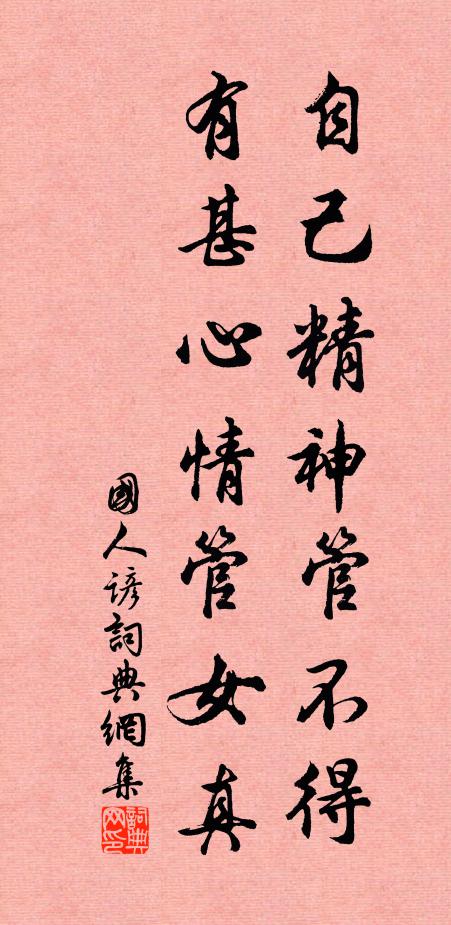 自己精神管不得
有甚心情管女真
國人諺詞典網集
詞典
网印